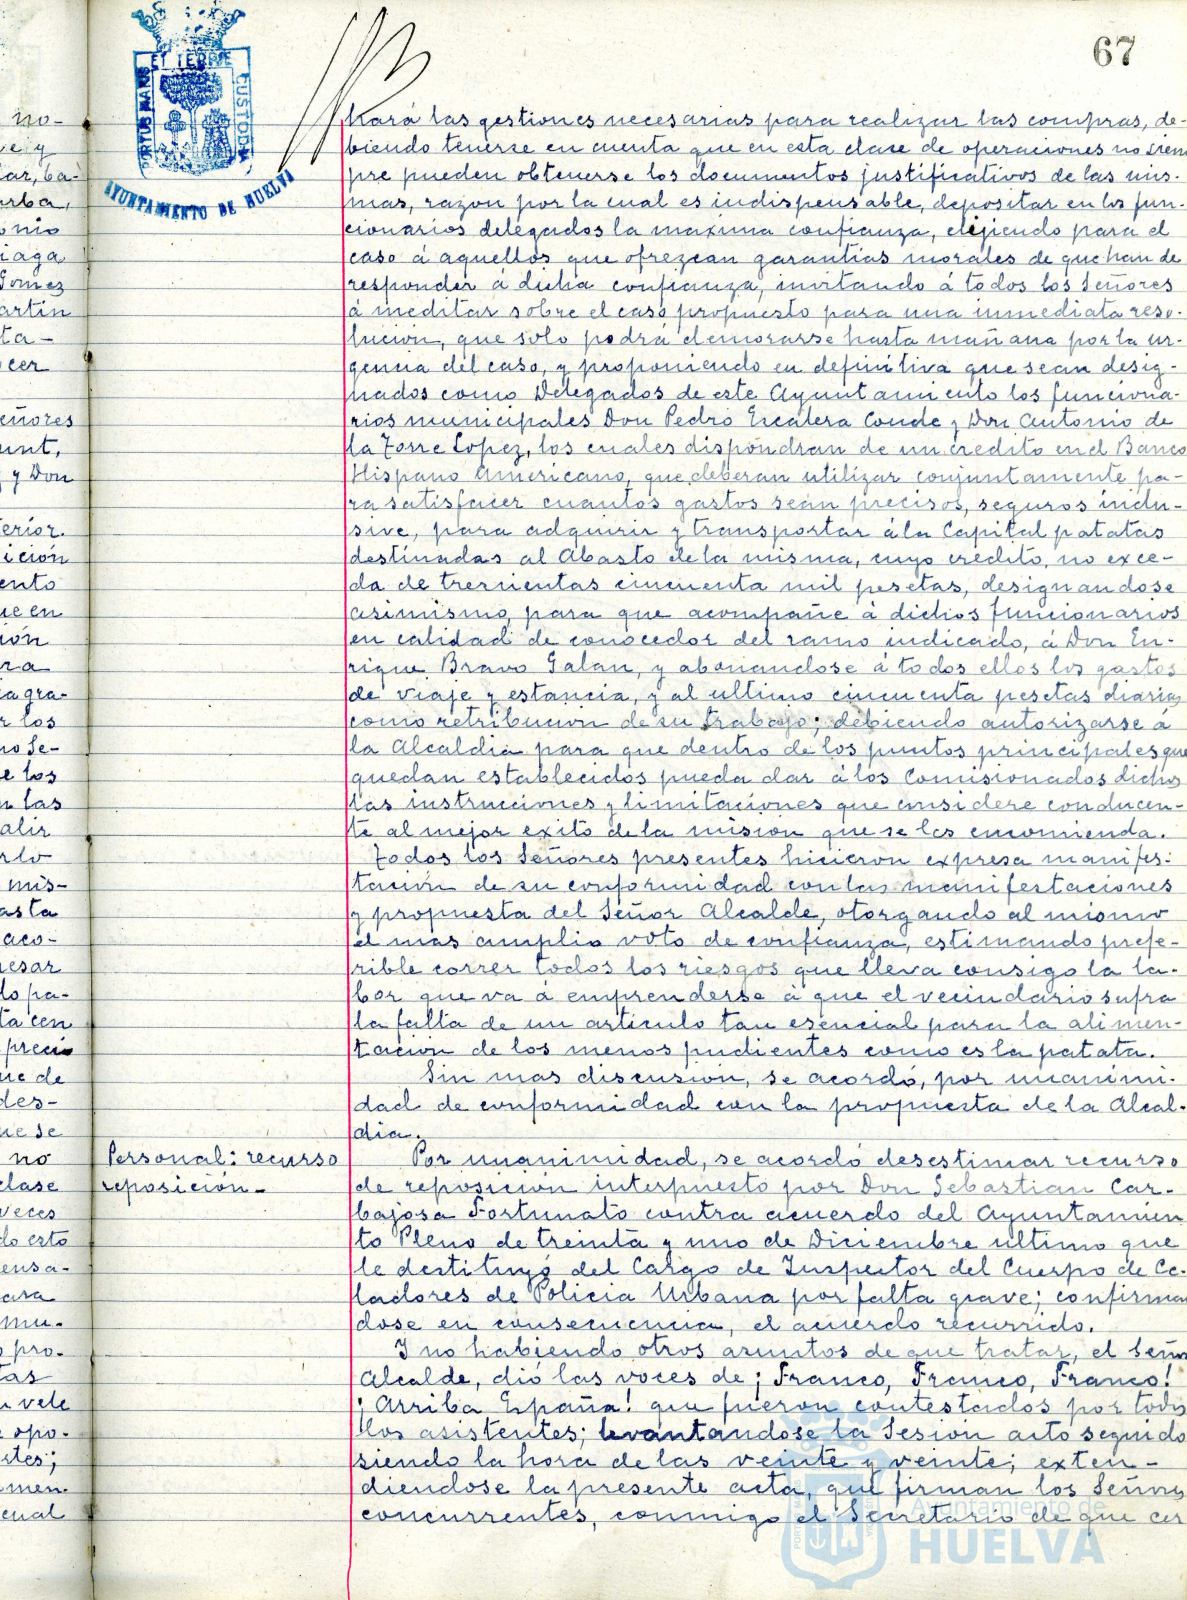 67
PORTUS MARIS ET TERRE CUSTODIA
AYUNTAMIENTO DE HUELVA
no-
ve y
iar, ba-
arba,
onio
iaga
Gomez
artin
ta-
ocer
eñores
unt,
y Don
erior.
ición
ento
ue en
ión
ra
iagra-
r los
no Se-
e los
n las
alir
rlo
mis-
asta
aco-
resar
lo pa-
ta cen
precio
ue de
des-
ue se
no
clase
veces
do esto
ensa-
cara
mu-
o pro-
tas
u vele
e opo-
rtes;
men-
cual
kará las gestiones necesarias para realizar las compras, de-
biendo tenerse en cuenta que en esta clase de operaciones no siem
pre pueden obtenerse los documentos justificativos de las mis-
mas, razon por la cual es indispensable, depositar en los fun-
cionarios delegados la maxima confianza, elijiendo para el
caso á aquellos que ofrezcan garantias morales de que han de
responder á dicha confianza, invitando á todos los Señores
á meditar sobre el caso propuesto para una inmediata reso-
lucion, que solo podrá demorarse hasta mañana por la ur-
gencia del caso, y proponiendo en definitiva que sean desig-
nados como Delegados de este Ayuntamiento los funciona-
rios municipales Don Pedro Escalera Conde y Don Antonio de
la Torre Lopez, los cuales dispondran de un credito en el Banco
Hispano Americano, que deberan utilizar conjuntamente pa-
ra satisfacer cuantos gastos sean precisos, seguros inclu-
sive, para adquirir y transportar á la Capital patatas
destinadas al Abasto de la misma, cuyo credito, no exce-
da de trescientas cincuenta mil pesetas, designandose
asimismo, para que acompañe á dichos funcionarios
en calidad de conocedor del ramo indicado, á Don En-
rique Bravo Galan, y abonandose á todos ellos los gastos
de viaje y estancia, y al ultimo cincuenta pesetas diarias
como retribucion de su trabajo; debiendo autorizarse á
la Alcaldia para que dentro de los puntos principales que
quedan establecidos pueda dar á los Comisionados dichos
las instrucciones y limitaciones que considere conducen-
te al mejor exito de la mision que se les encomienda.
Todos los Señores presentes hicieron expresa manifes-
tación de su conformidad con las manifestaciones
y propuesta del Señor Alcalde, otorgando al mismo
el mas amplio voto de confianza, estimando prefe-
rible correr todos los riesgos que lleva consigo la la-
bor que va á emprenderse á que el vecindario sufra
la falta de un articulo tan esencial para la alimen-
tacion de los menos pudientes como es la patata.
Sin mas discusion, se acordó, por unanimi-
dad de conformidad con la propuesta de la Alcal-
dia.
Personal: recurso
reposición-
Por unanimidad, se acordó desestimar recurso
de reposición interpuesto por Don Sebastian Car-
bajosa Fortunato contra acuerdo del Ayuntamien
to Pleno de treinta y uno de Diciembre ultimo que
le destituyó del Cargo de Inspector del Cuerpo de Ce-
ladores de Policia Urbana por falta grave; confirman
dose en consecuencia, el acuerdo recurrido.
Y no habiendo otros asuntos de que tratar, el Señor
Alcalde, dió las voces de ¡Franco, Franco, Franco!
¡Arriba España! que fueron contestados por todos
los asistentes; levantandose la Sesion acto seguido
siendo la hora de las veinte y veinte; exten-
diendose la presente acta, que firman los Señores
concurrentes, conmigo el Secretario de que cer
Ayuntamiento de
HUELVA